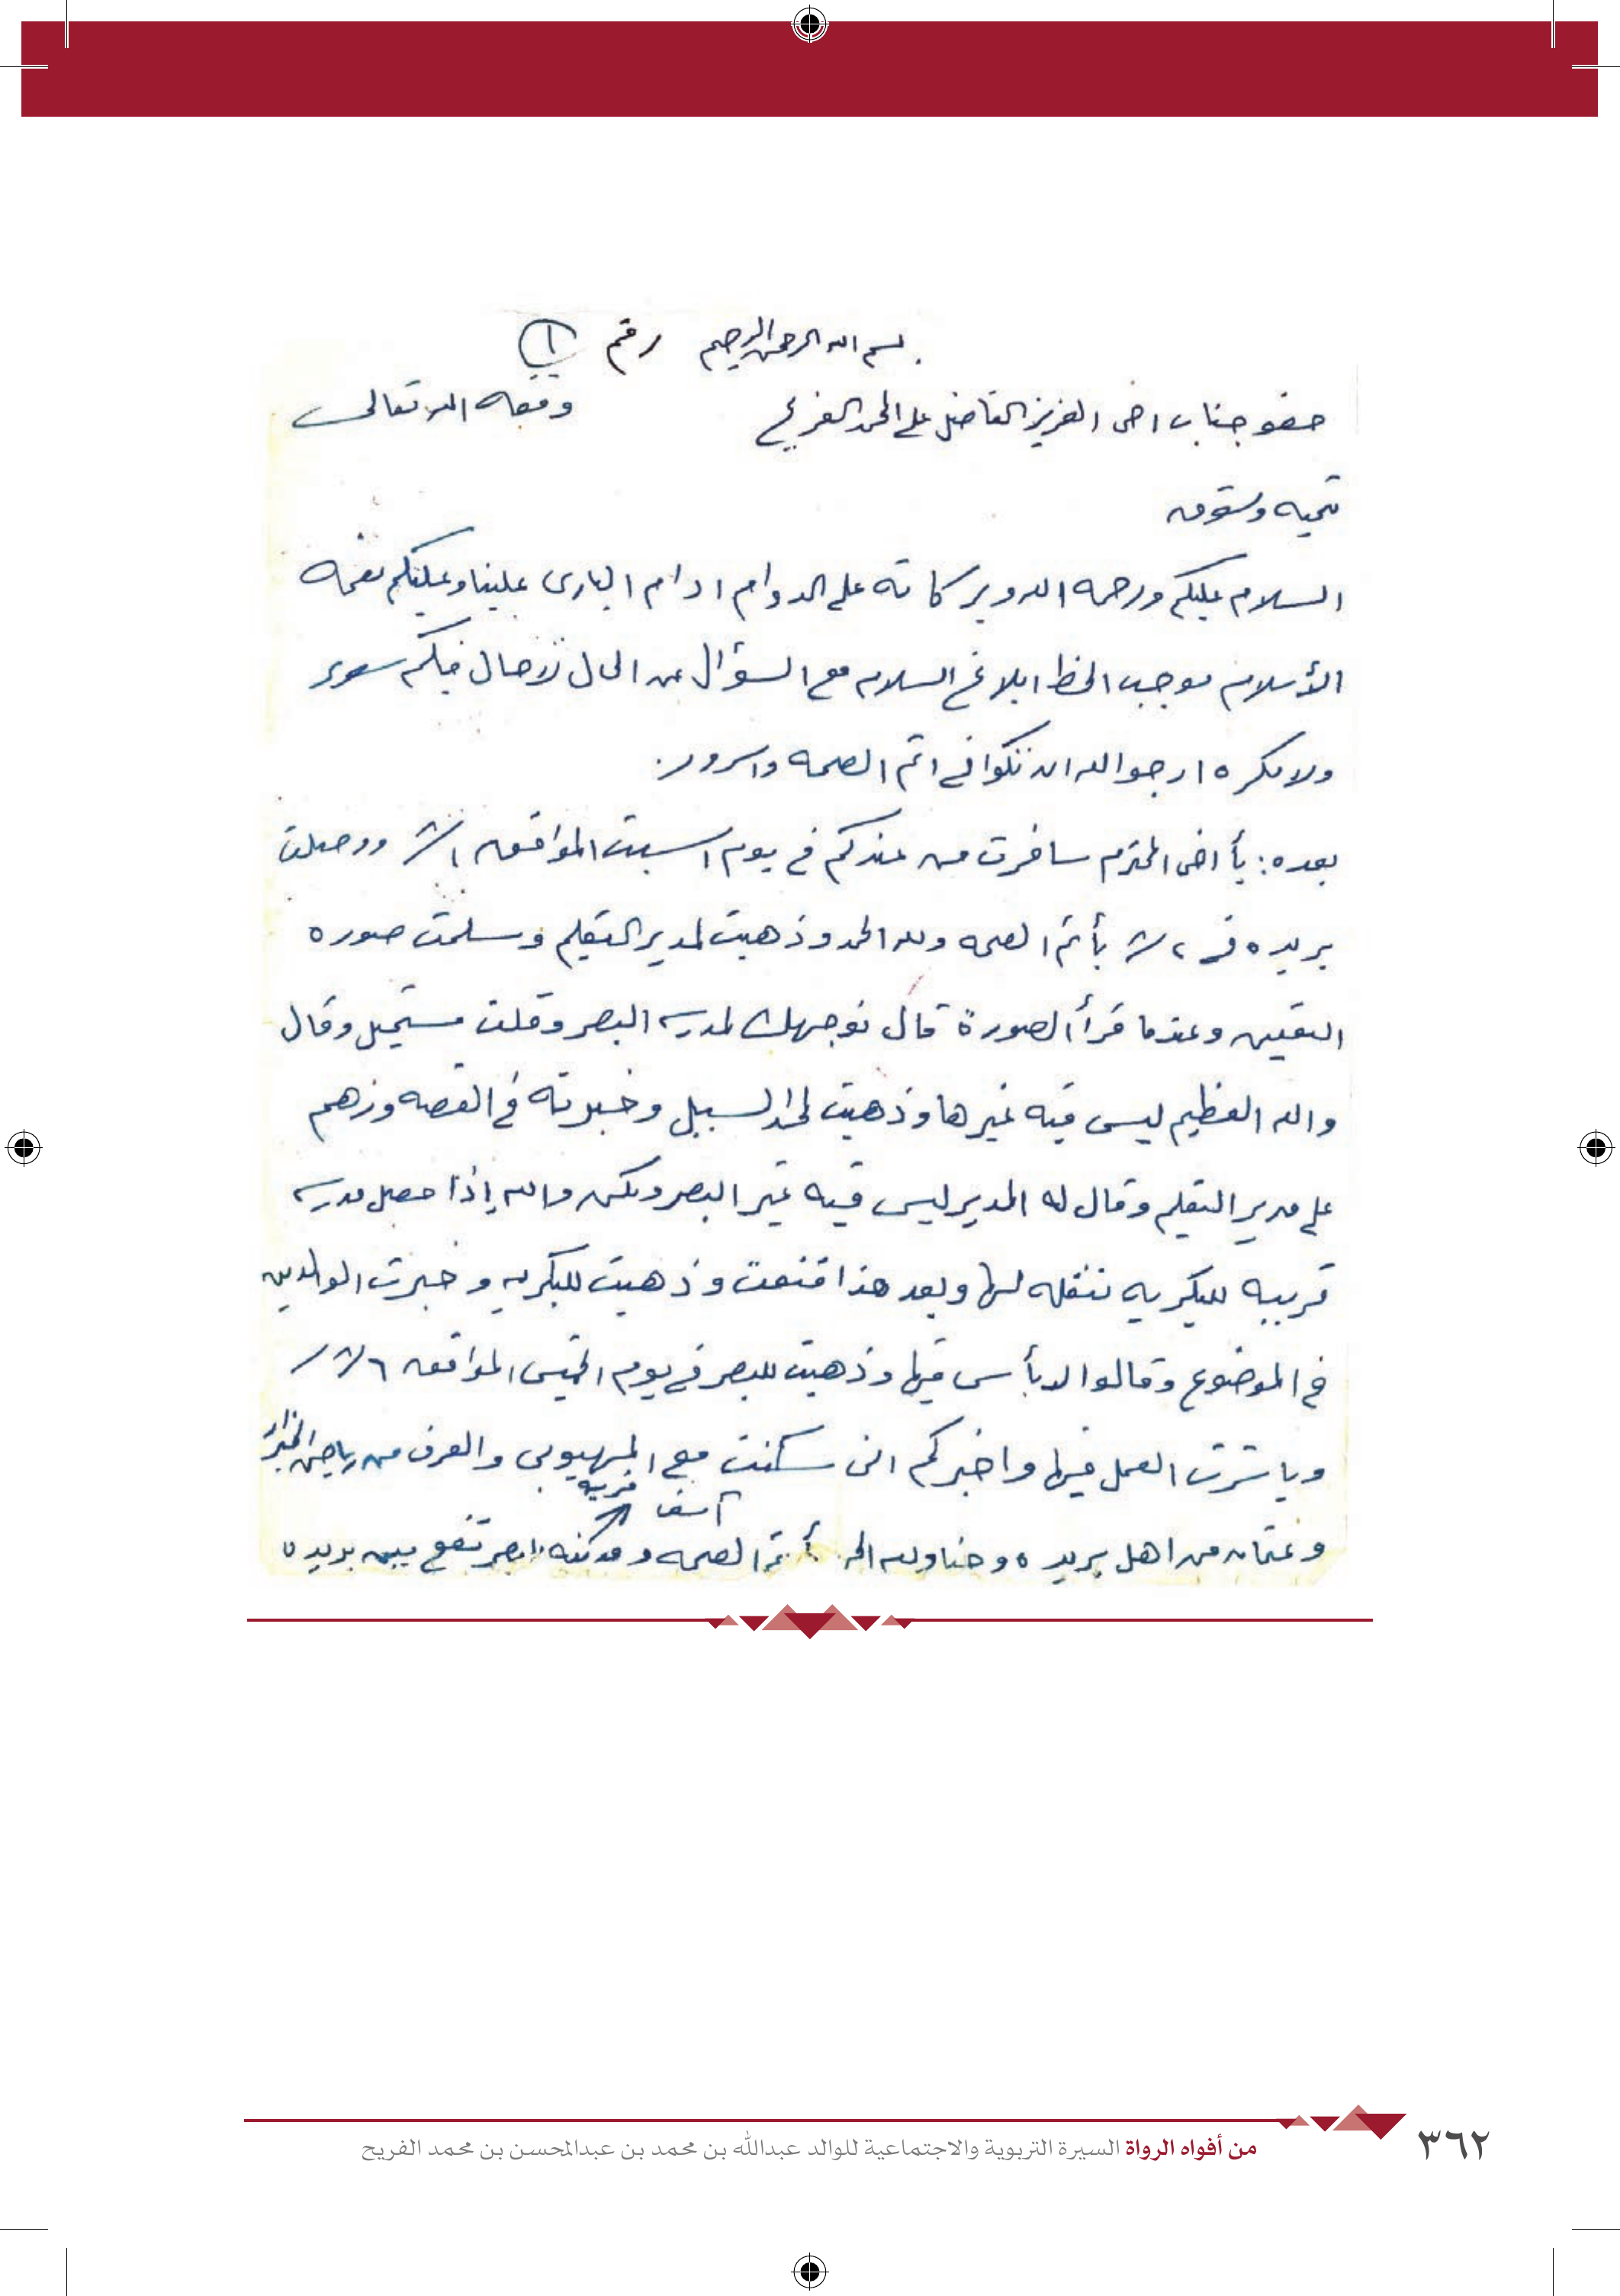 بسم الله الرحمن الرحيم رقم ١
حضو جناب اخي العزيز الفاضل علي الحمد الفريح وفقه الله تعالى
تحيه وشوق
السلام عليكم ورحمه الله وبركاته على الدوام ادام الباري علينا وعليكم نعمه
الأسلام موجب الخط ابلاغ السلام مع السؤال عن الحال لاحال فيكم سوء
ولا مكره ارجو الله ان تكوا في اتم الصحه واسرور.
بعده: يأ اخي المحترم سافرت من عندكم في يوم اسبت الموافق ووصلت
بريده في بأتم الصحه ولله الحمد وذهبت لمدير التعليم وسلمت صوره
التعيين وعندما قرأ الصورة قال نوجهك لمدرسه البصر وقلت مستحيل وقال
والله العظيم ليس فيه غيرها وذهبت السبيل وخبرته في القصه وزهم
على مدير التعليم وقال له المدير ليس فيه غير البصر ولكن والله إذا حصل مدرسه
قريبه للبكريه ننقله لها وبعد هذا قنعت وذهبت للبكريه وخبرت الوالدين
في الموضوع وقالوا لابأس فيها وذهبت للبصر في يوم الخميس الموافق
وباشرت العمل فيها واخبركم اني سكنت مع المهيوبي والعرف من رياض الخبراء
آسف قريه
وعثمان من اهل بريده وحنا ولله الحمد بأتم الصحه و البصر تقع بين بريده
من أفواه الرواة السيرة التربوية والاجتماعية للوالد عبدالله بن محمد بن عبدالمحسن بن محمد الفريح
٣٦٢